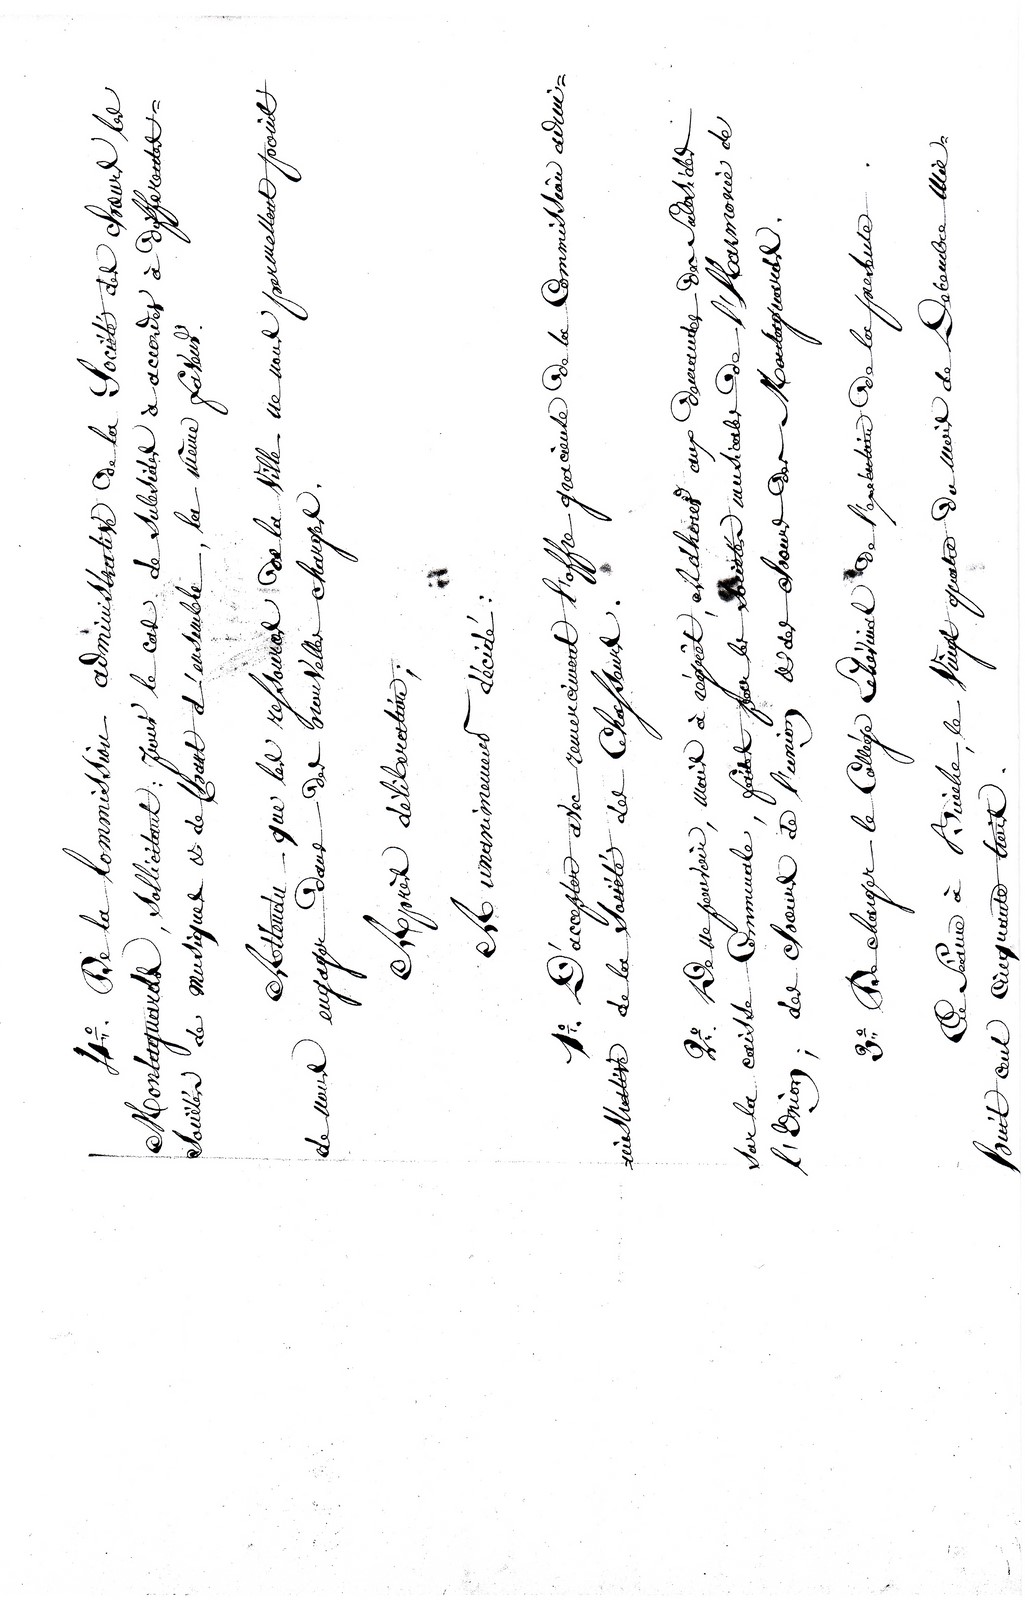 4°. De la Commission administrative de la Société des Chœurs les
Montagnards, sollicitant; pour le cas de subsides à accorder à différentes
Sociétés de musique & de Chant d'ensemble, la même faveur.
Attendu que les ressources de la Ville ne nous permettent point
de nous engager dans des nouvelles charges.
Après délibération;
A unanimement décidé:
1°. D'accepter avec remerciement l'offre gracieuse de la Commission admi=
nistrative de la Société des Chasseurs.
2°. De ne pouvoir, mais à regret, adhérer aux demandes de subsides
sur la caisse Communale, faites par les Sociétés musicales de l'Harmonie de
l'Union; des chœurs de l'union & des chœurs des Montagnards.
3°. De charger le Collège Echevinal de l'exécution de la présente.
En Séance à Binche, le vingt quatre du mois de Décembre Mil=
huit cent cinquante trois.